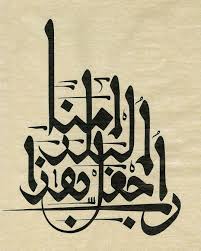 رب اجعل هذا
البلد
امنا